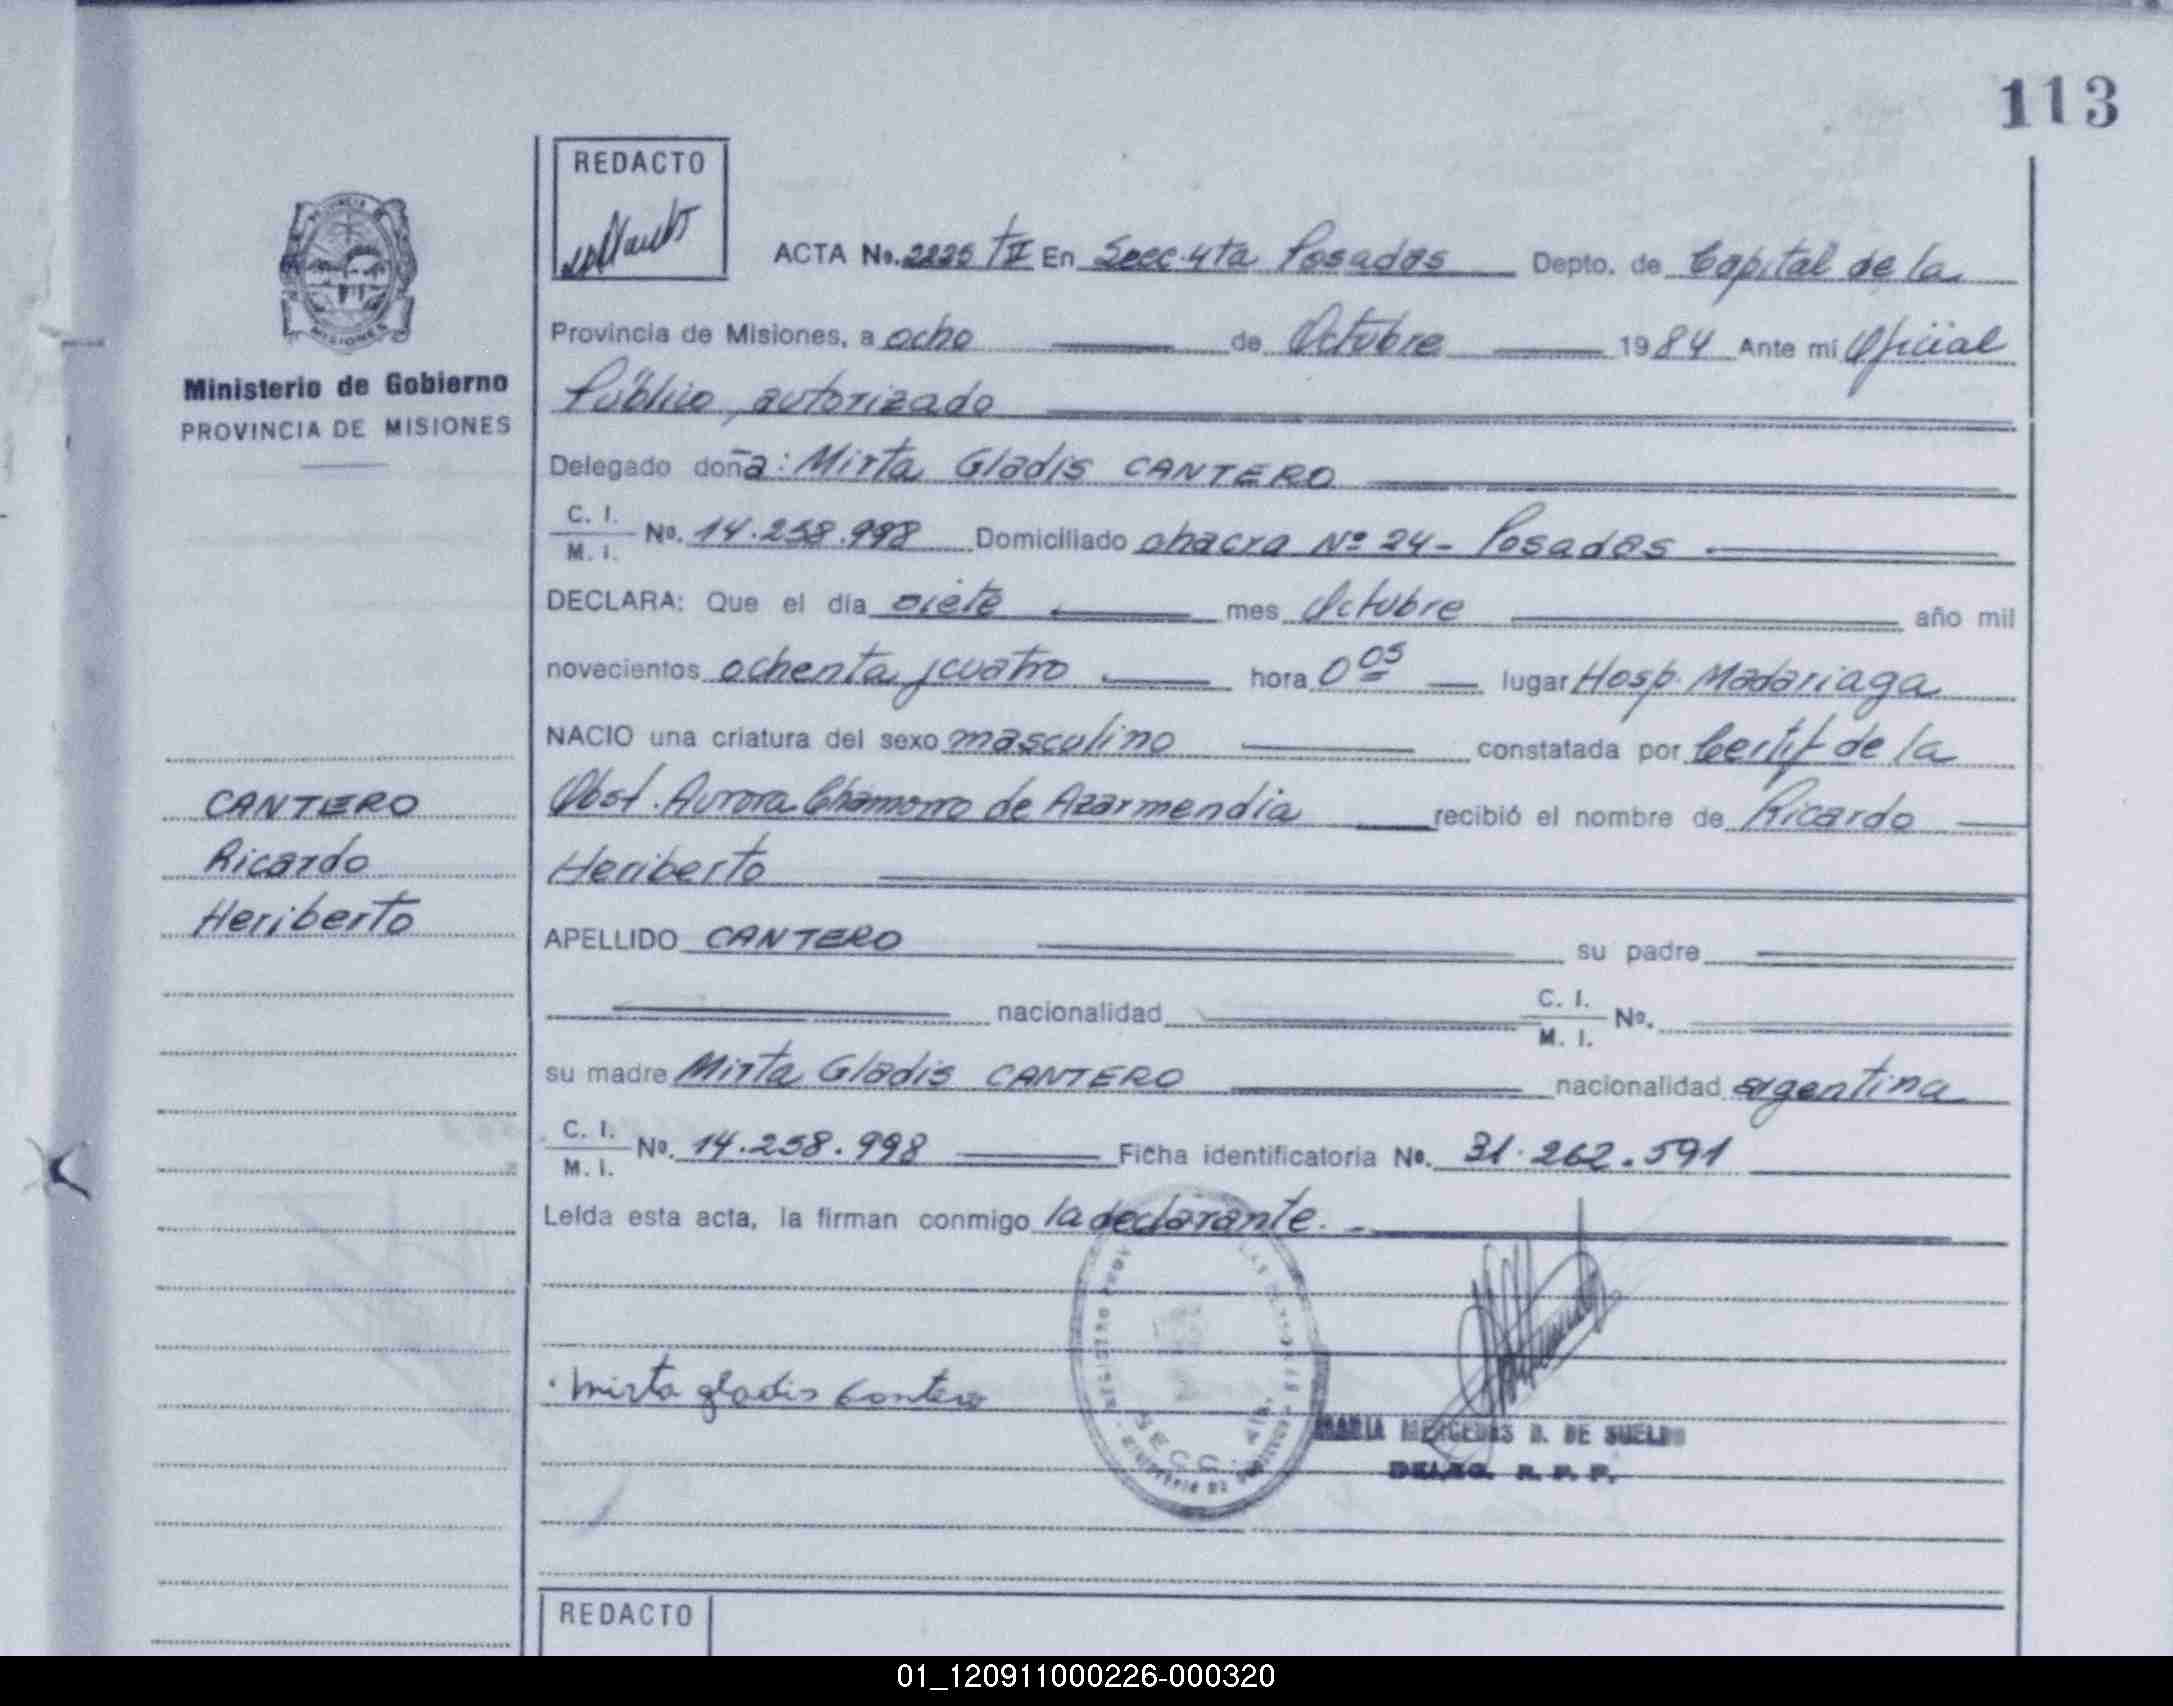 113
REDACTO
PROVINCIA DE
MISIONES
ACTA No. 2225 TII En Secc. 4ta Posadas Depto. de Capital de la
Provincia de Misiones, a ocho de Octubre 1984 Ante mí Oficial
Ministerio de Gobierno
PROVINCIA DE MISIONES
Público autorizado
Delegado doña: Mirta Gladis CANTERO
C. I.
M. I. No. 14.258.998 Domiciliado chacra Nº 24 - Posadas
DECLARA: Que el día siete mes Octubre año mil
novecientos ochenta y cuatro hora 0 05 lugar Hosp. Madariaga
NACIO una criatura del sexo masculino constatada por Certif de la
Obst. Aurora Chamorro de Azarmendia recibió el nombre de Ricardo
Heriberto
CANTERO
Ricardo
Heriberto
APELLIDO CANTERO su padre
nacionalidad C. I.
M. I. No.
su madre Mirta Gladis CANTERO nacionalidad argentina
C. I.
M. I. No. 14.258.998 Ficha identificatoria No. 31.262.591
Leída esta acta, la firman conmigo la declarante. -
mirta gladis Cantero
SECC. 4ta.
MARIA MERCEDES D. DE SUELDO
DELEG. R. P. P.
REDACTO
01_120911000226-000320